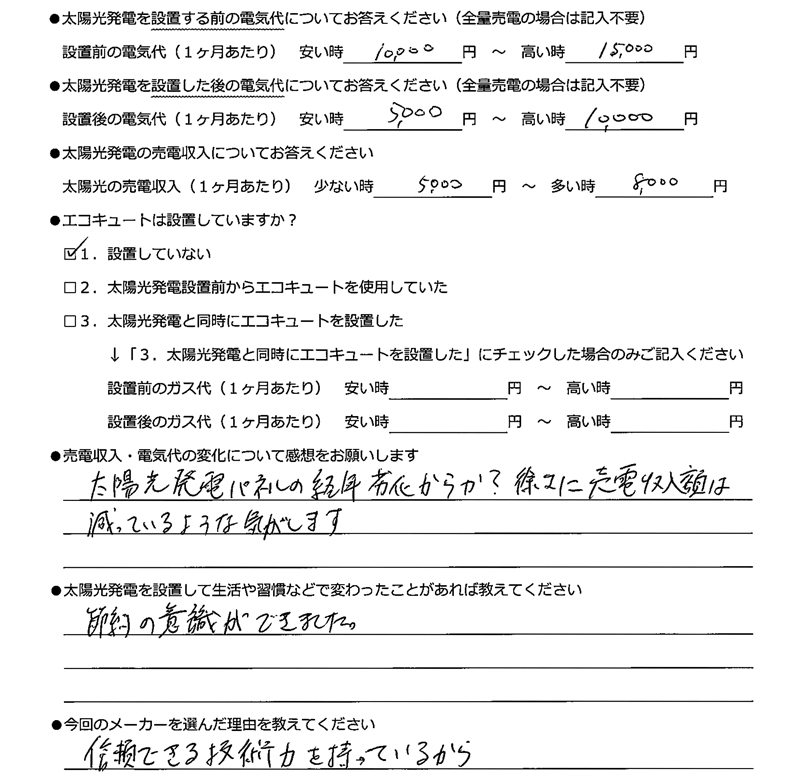 ●太陽光発電を設置する前の電気代についてお答えください（全量売電の場合は記入不要）
設置前の電気代（１ヶ月あたり） 安い時 10,000 円 ～ 高い時 15,000 円
●太陽光発電を設置した後の電気代についてお答えください（全量売電の場合は記入不要）
設置後の電気代（１ヶ月あたり） 安い時 5,000 円 ～ 高い時 10,000 円
●太陽光発電の売電収入についてお答えください
太陽光の売電収入（１ヶ月あたり） 少ない時 5,000 円 ～ 多い時 8,000 円
●エコキュートは設置していますか？
☑１．設置していない
□２．太陽光発電設置前からエコキュートを使用していた
□３．太陽光発電と同時にエコキュートを設置した
↓「３．太陽光発電と同時にエコキュートを設置した」にチェックした場合のみご記入ください
設置前のガス代（１ヶ月あたり） 安い時 円 ～ 高い時 円
設置後のガス代（１ヶ月あたり） 安い時 円 ～ 高い時 円
●売電収入・電気代の変化について感想をお願いします
太陽光発電パネルの経年劣化からか？徐々に売電収入額は
減っているような気がします
●太陽光発電を設置して生活や習慣などで変わったことがあれば教えてください
節約の意識ができました。
●今回のメーカーを選んだ理由を教えてください
信頼できる技術力を持っているから